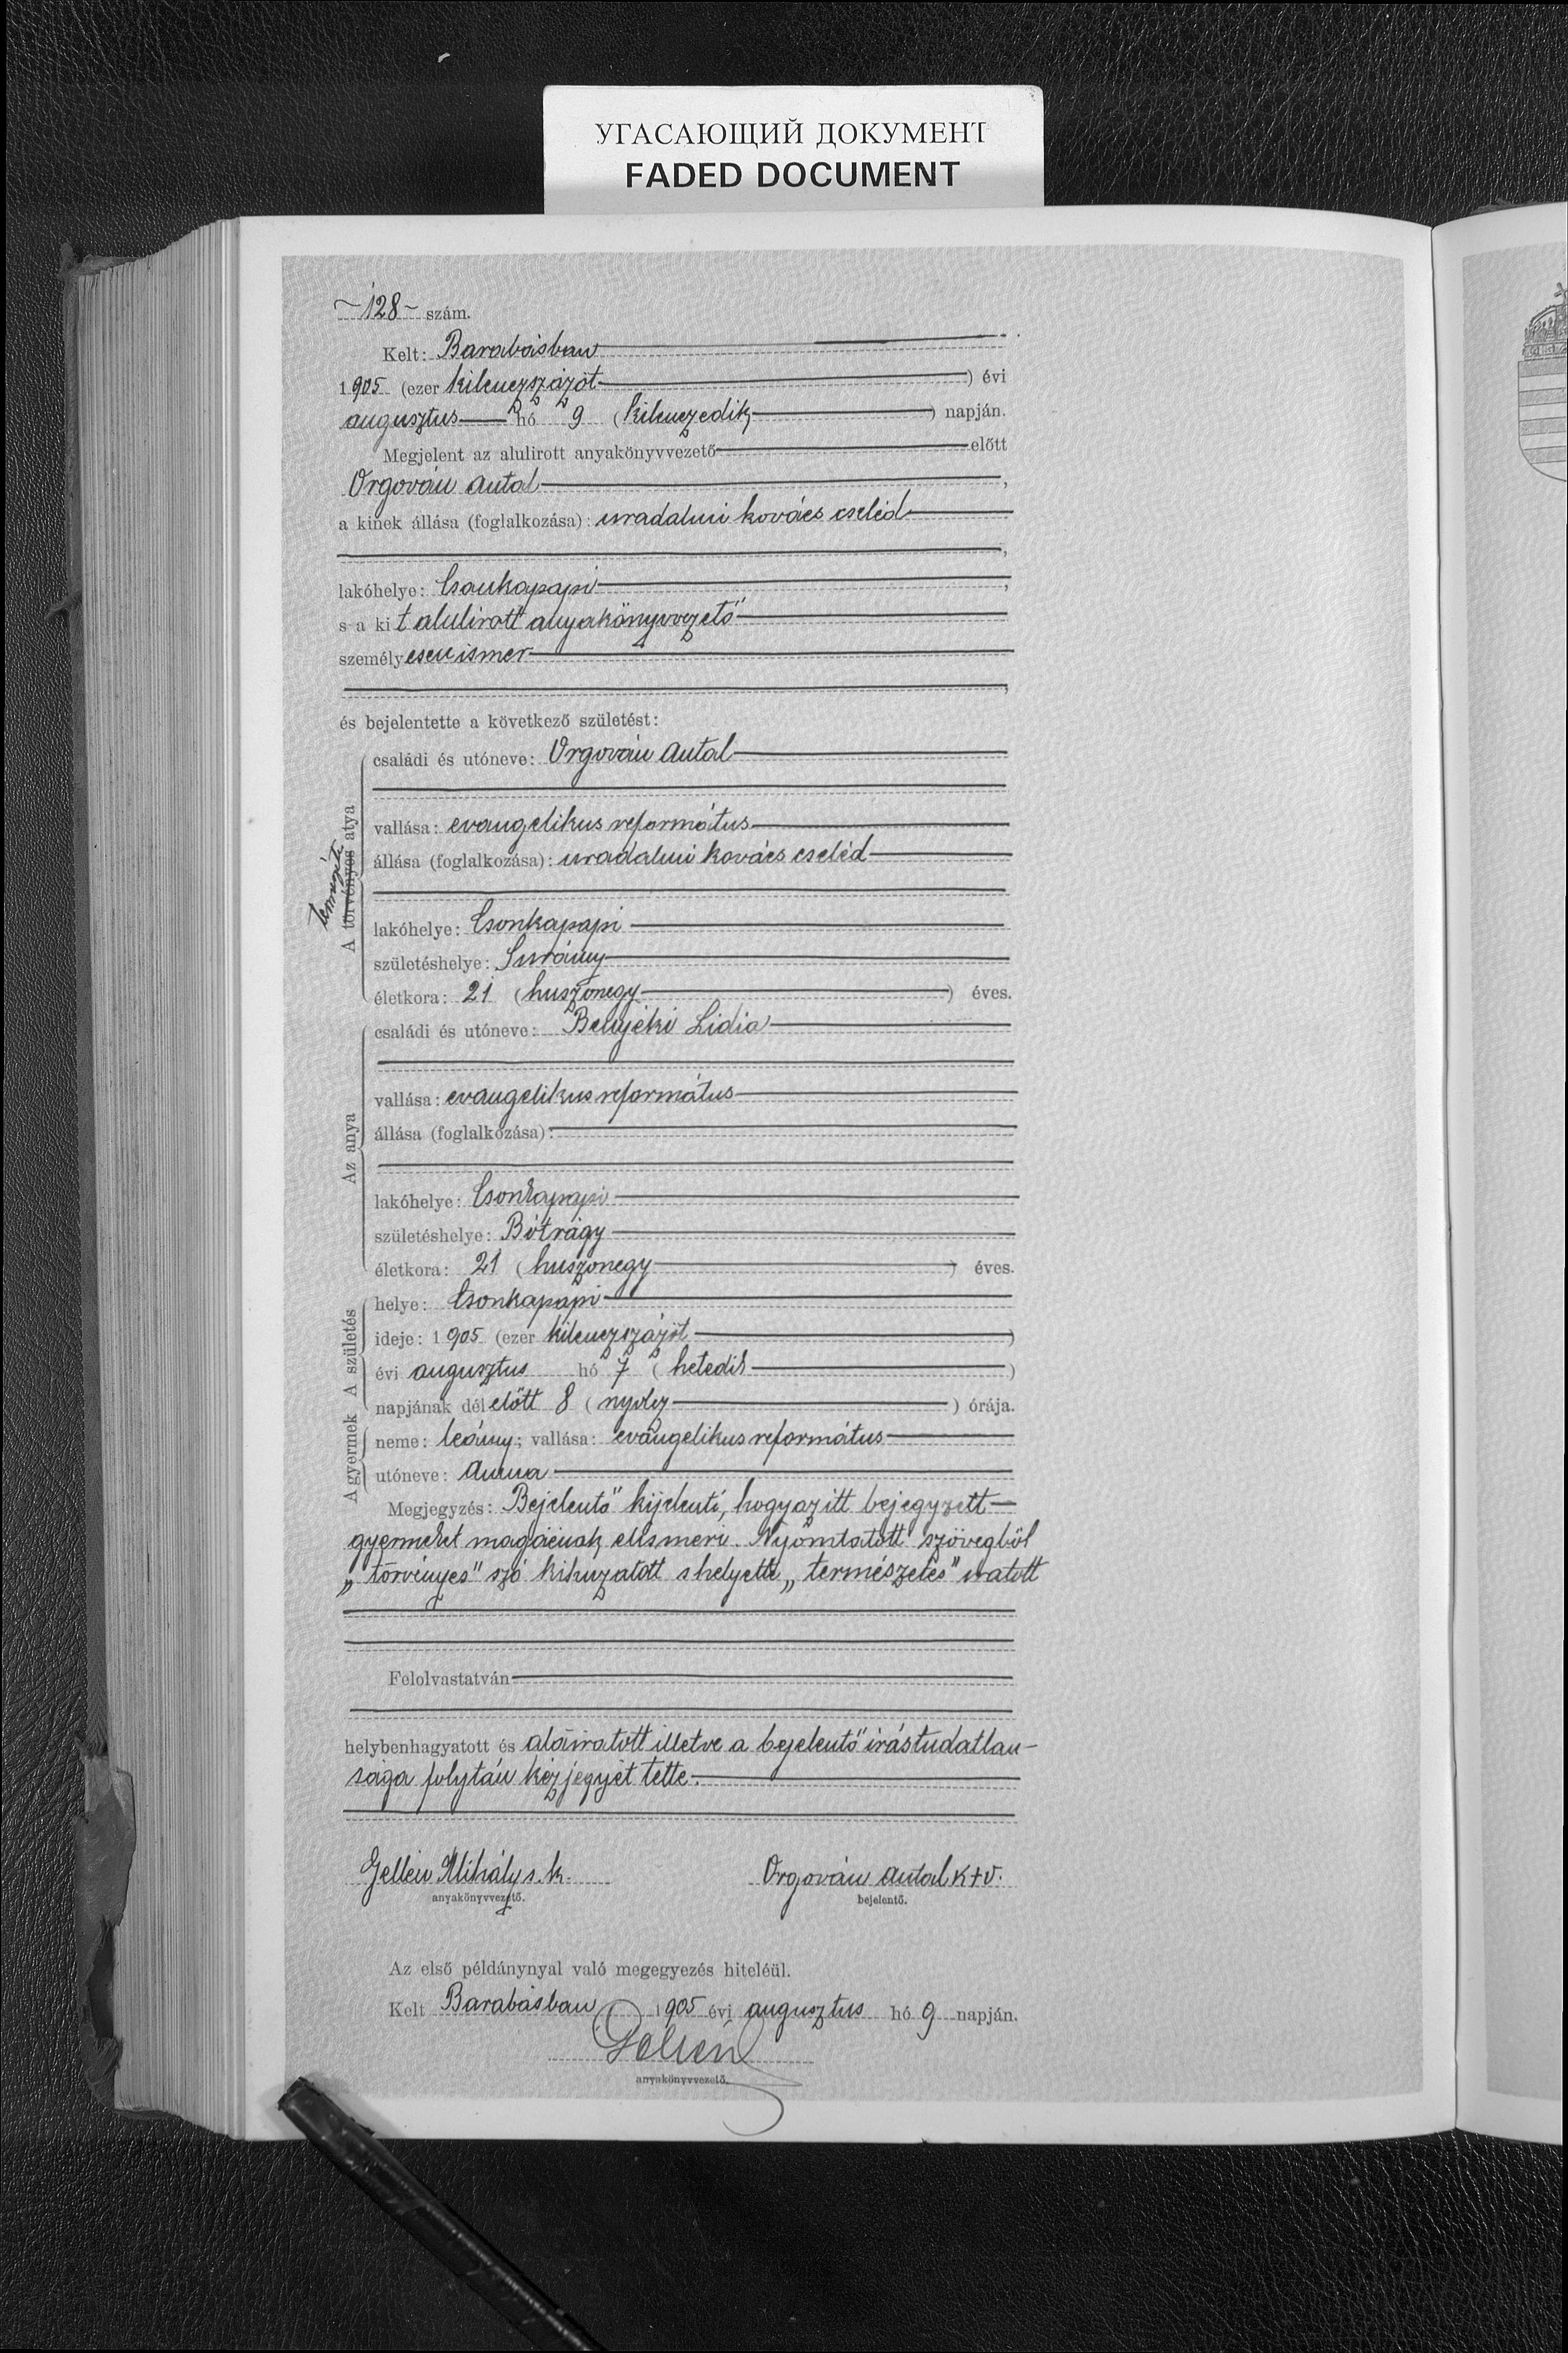 УГАСАЮЩИЙ ДОКУМЕНТ
FADED DOCUMENT
~128~ szám.
Kelt: Barabásban
1905 (ezer kilenczszázöt) évi
augusztus hó 9 (kilenczedik) napján.
Megjelent az alulirott anyakönyvvezető előtt
Orgován Antal,
a kinek állása (foglalkozása): uradalmi kovács cseléd
,
lakóhelye: Csonkapapi,
s a kit alulirott anyakönyvvezető
személyesen ismer
,
és bejelentette a következő születést:
A törvényes atya
természetes
családi és utóneve: Orgován Antal
vallása: evangelikus református
állása (foglalkozása): uradalmi kovács cseléd
lakóhelye: Csonkapapi
születéshelye: Surány
életkora: 21 (huszonegy) éves.
Az anya
családi és utóneve: Benyéki Lidia
vallása: evangelikus református
állása (foglalkozása):
lakóhelye: Csonkapapi
születéshelye: Bótrágy
életkora: 21 (huszonegy) éves.
A születés
helye: Csonkapapi
ideje: 1905 (ezer kilenczszázöt)
évi augusztus hó 7 (hetedik)
napjának délelőtt 8 (nyolcz) órája.
A gyermek
neme: leány; vallása: evangelikus református
utóneve: Anna
Megjegyzés: Bejelentő kijelenti, hogy az itt bejegyzett
gyermeket magáénak elismeri. Nyomtatott szövegből
„törvényes" szó kihuzatott s helyette „természetes" iratott
Felolvastatván
helybenhagyatott és aláiratott illetve a bejelentő irástudatlan-
sága folytán kézjegyét tette.
Gellén Mihály s. k. Orgován Antal k+v.
anyakönyvvezető. bejelentő.
Az első példánynyal való megegyezés hiteléül.
Kelt Barabásban 1905 évi augusztus hó 9 napján.
Gellén
anyakönyvvezető.